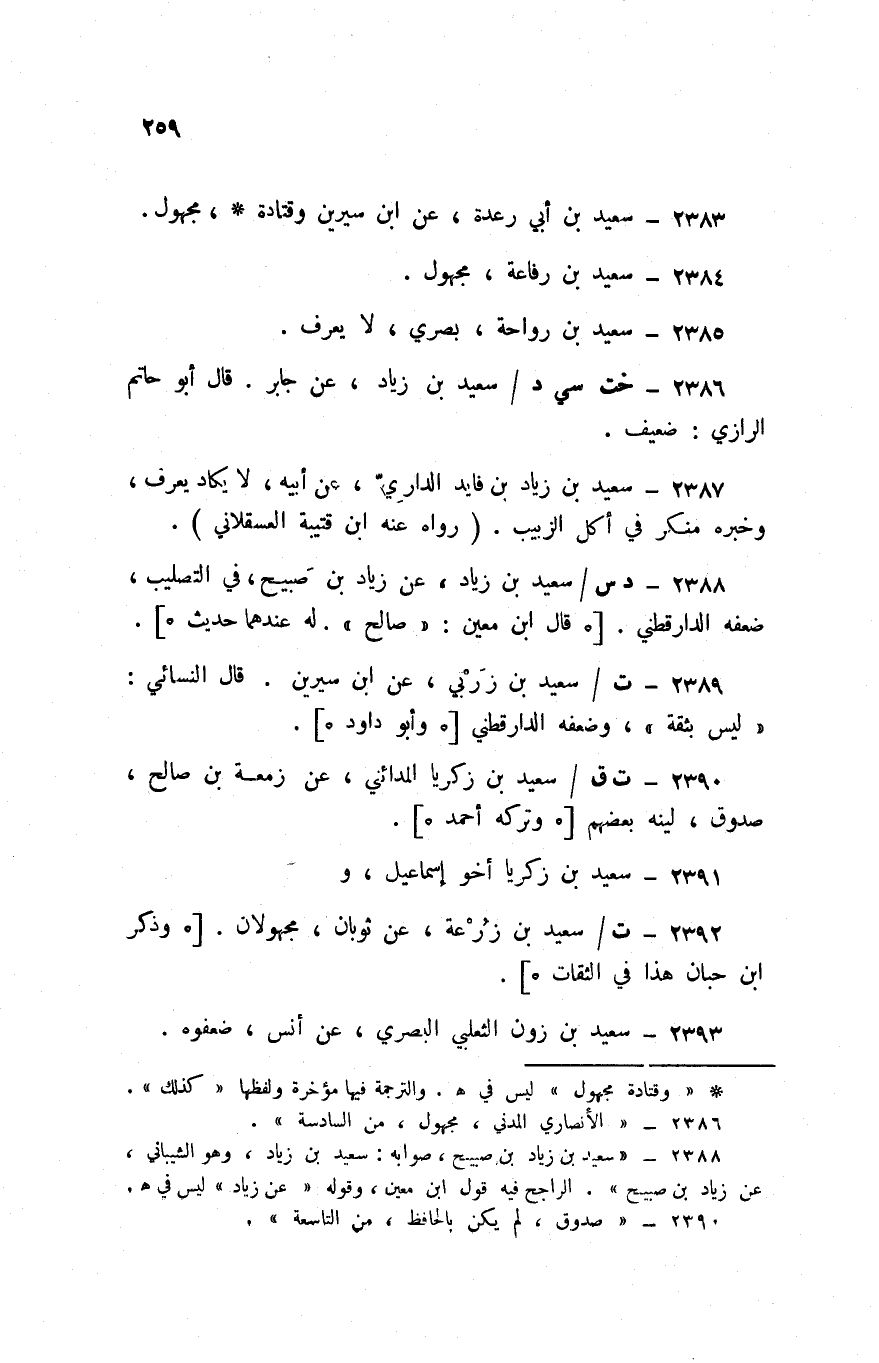 ٢٥٩
٢٣٨٣ ــ سعيد بن أبي رعدة ، عن ابن سيرين وقتادة * ، مجهول .
٢٣٨٤ ــ سعيد بن رفاعة ، مجهول .
٢٣٨٥ ــ سعيد بن رواحة ، بصري ، لا يعرف .
٢٣٨٦ ــ خت سي د / سعيد بن زياد ، عن جابر . قال أبو حاتم
الرازي : ضعيف .
٢٣٨٧ ــ سعيد بن زياد بن فايد الداريّ ، عن أبيه ، لا يكاد يعرف ،
وخبره منكر في أكل الزبيب . ( رواه عنه ابن قتيبة العسقلاني ) .
٢٣٨٨ ــ د س / سعيد بن زياد ، عن زياد بن صَبيح ، في التصليب ،
ضعفه الدارقطني . [ه قال ابن معين : « صالح » . له عندهما حديث ه] .
٢٣٨٩ ــ ت / سعيد بن زَرْبي ، عن ابن سيرين . قال النسائي :
« ليس بثقة » ، وضعفه الدارقطني [ه وأبو داود ه] .
٢٣٩٠ ــ ت ق / سعيد بن زكريا المدائني ، عن زمعة بن صالح ،
صدوق ، لينه بعضهم [ه وتركه أحمد ه] .
٢٣٩١ ــ سعيد بن زكريا أخو إسماعيل ، و
٢٣٩٢ ــ ت / سعيد بن زُرْعة ، عن ثوبان ، مجهولان . [ه وذكر
ابن حبان هذا في الثقات ه] .
٢٣٩٣ ــ سعيد بن زون الثعلبي البصري ، عن أنس ، ضعفوه .
* « وقتادة مجهول » ليس في ه . والترجمة فيها مؤخرة ولفظها « كذلك » .
٢٣٨٦ ــ « الأنصاري المدني ، مجهول ، من السادسة » .
٢٣٨٨ ــ « سعيد بن زياد بن صبيح ، صوابه : سعيد بن زياد ، وهو الشيباني ،
عن زياد بن صبيح » . الراجح فيه قول ابن معين ، وقوله « عن زياد » ليس في ه .
٢٣٩٠ ــ « صدوق ، لم يكن بالحافظ ، من التاسعة » .